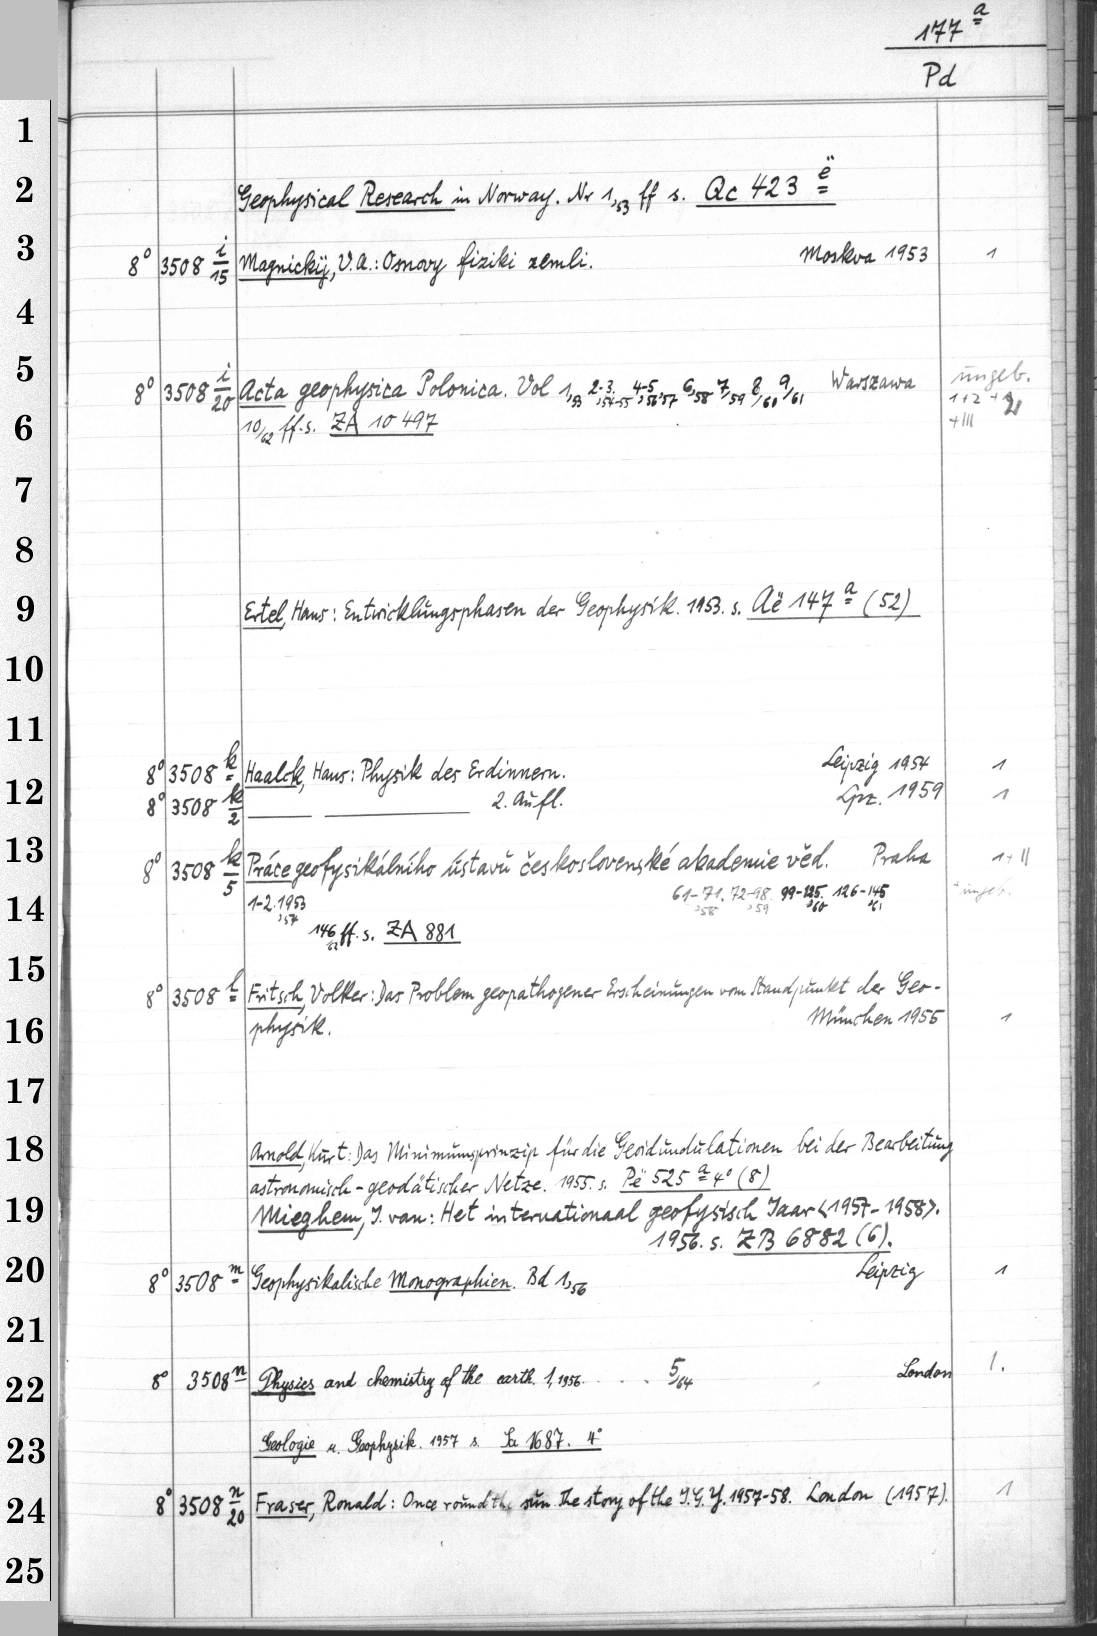 177 a
Pd
1
2 Geophysical Research in Norway. Nr 1,53 ff s. Qc 423 ë
3 8° 3508 i/15 Magnickij, V.A.: Osnovy fiziki zemli. Moskva 1953 1
4
5 8° 3508 i/20 Acta geophysica Polonica. Vol 1,53 2-3,54-55 4-5,56,57 6,58 7,59 8,60 9,61 Warszawa ungeb.
1+2+
6 10,62 ff. s. ZA 10 497 +III
7
8
9 Ertel, Hans: Entwicklungsphasen der Geophysik. 1953. s. Aë 147 a (52)
10
11
8° 3508 k Haalck, Hans: Physik des Erdinnern. Leipzig 1954 1
12 8° 3508 k/2 2. Aufl. Lpz. 1959 1
13 8° 3508 k/5 Práce geofysikálního ústavů československé akademie věd. Praha 1+II
14 1-2.1953,54 61-71,58 72-98,59 99-125,60 126-145,61 + ungeb.
146,62 ff. s. ZA 881
15 8° 3508 l Fritsch, Volker: Das Problem geopathogener Erscheinungen vom Standpunkt der Geo-
16 physik. München 1955 1
17
18 Arnold, Kurt: Das Minimumsprinzip für die Geoidundulationen bei der Bearbeitung
astronomisch-geodätischer Netze. 1955. s. Pë 525 a 4° (8)
19 Mieghem, J. van: Het internationaal geofysisch Jaar <1957-1958>.
1956. s. ZB 6882 (6).
20 8° 3508 m Geophysikalische Monographien. Bd 1,56 Leipzig 1
21
22 8° 3508 n Physics and chemistry of the earth. 1,1956 . . . . 5/64 London 1.
23 Geologie u. Geophysik. 1957 s. 1687. 4°
24 8° 3508 n/20 Fraser, Ronald: Once round the sun. The story of the I.G.Y. 1957-58. London (1957). 1
25